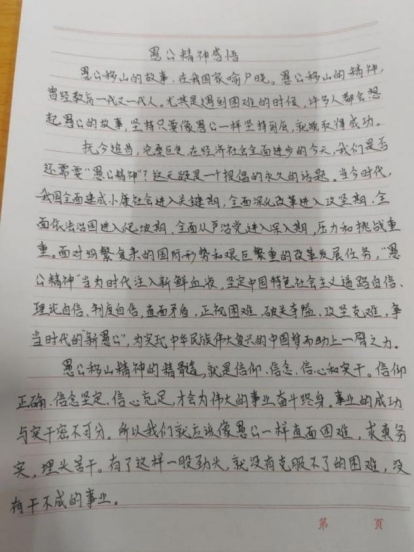 愚公精神感悟
愚公移山的故事，在我国家喻户晓。愚公移山的精神，
曾经教育一代又一代人。尤其是遇到困难的时候，许多人都会想
起愚公的故事，坚持只要像愚公一样坚持到底，就能取得成功。
抚今追昔，沧桑巨变，在经济社会全面进步的今天，我们是否
还需要"愚公精神"？这无疑是一个提倡的永久的话题。当今时代，
我国全面建成小康社会进入关键期，全面深化改革进入攻坚期，全
面依法治国进入促进期，全面从严治党进入深入期，压力和挑战重
重。面对纷繁复杂的国内形势和艰巨繁重的改革发展任务，"愚
公精神"当为时代注入新鲜血液，坚定中国特色社会主义道路自信、
理论自信、制度自信，直面矛盾，正视困难，破关夺隘，攻坚克难，争
当时代的"新愚公"，为实现中华民族伟大复兴的中国梦而助上一臂之力。
愚公移山精神的精髓，就是信仰、信念、信心和实干。信仰
正确、信念坚定、信心充足，才会为伟大的事业奋斗终身。事业的成功
与实干密不可分。所以我们就应该像愚公一样直面困难，求真务
实，埋头苦干。有了这样一股劲头，就没有克服不了的困难，没
有干不成的事业。
第 页